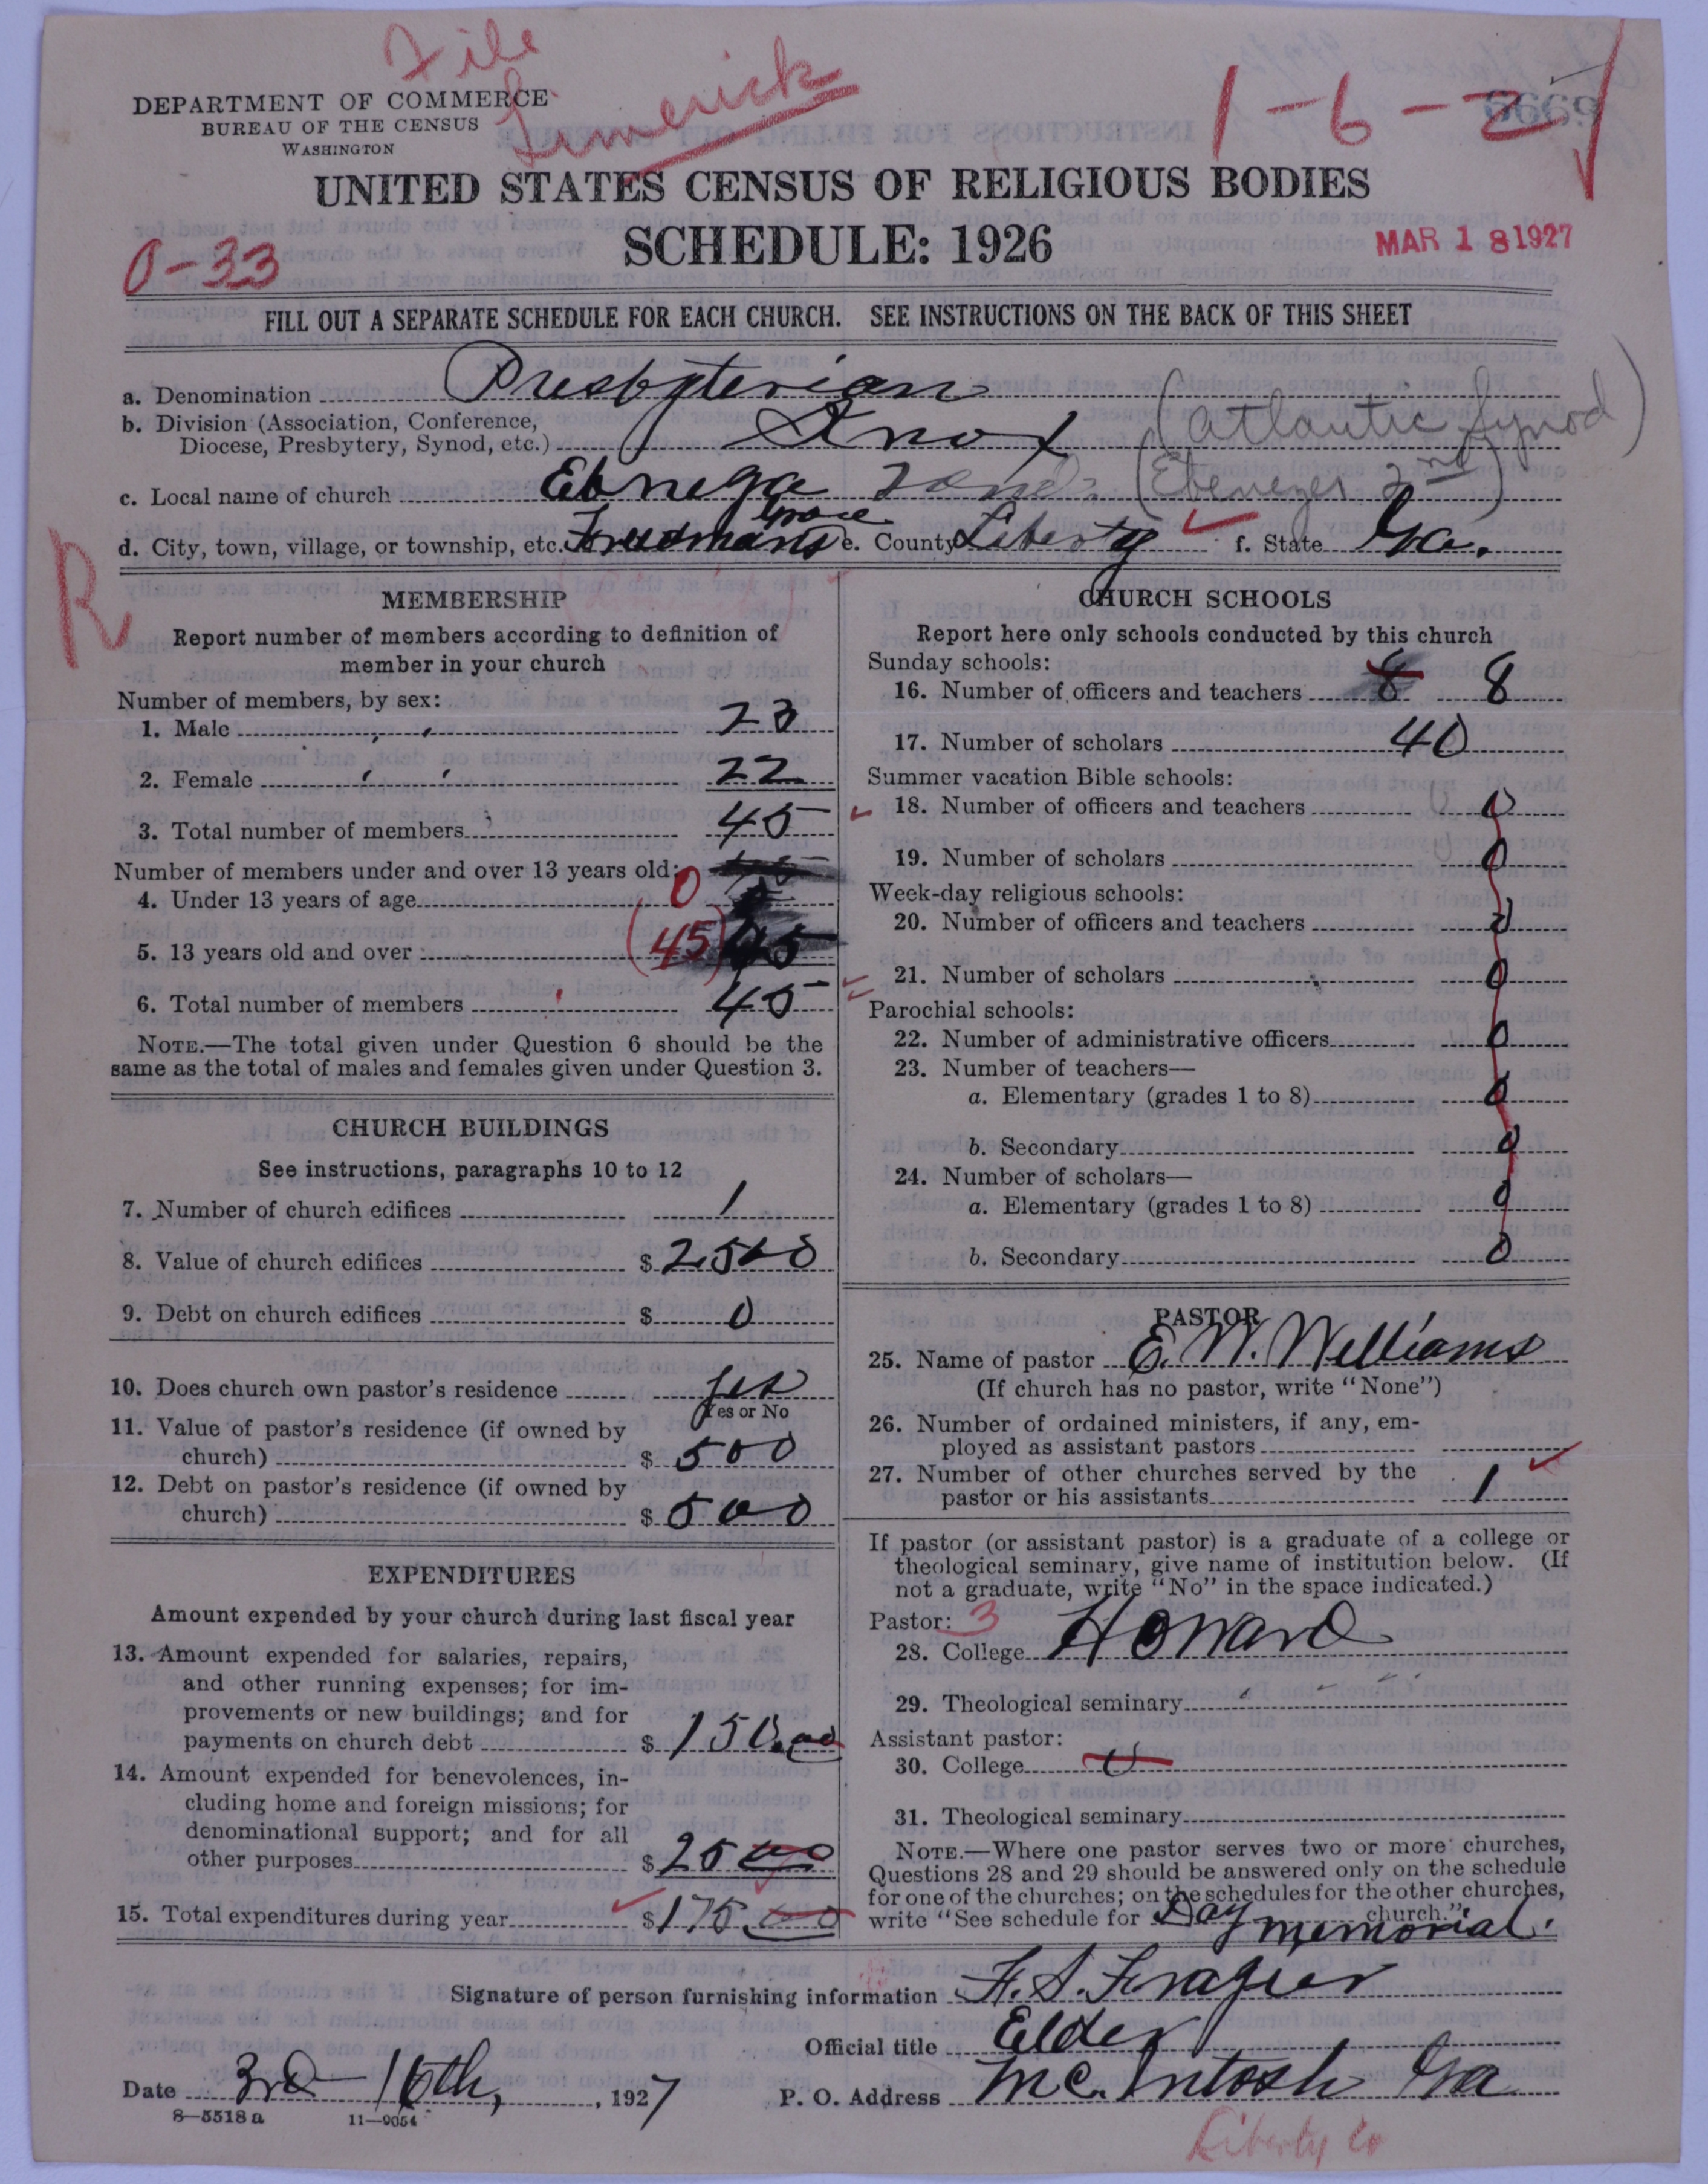 File
Limerick
DEPARTMENT OF COMMERCE
BUREAU OF THE CENSUS
WASHINGTON
1-6-2
6669
UNITED STATES CENSUS OF RELIGIOUS BODIES
SCHEDULE: 1926
0-33
MAR 18 1927
FILL OUT A SEPARATE SCHEDULE FOR EACH CHURCH. SEE INSTRUCTIONS ON THE BACK OF THIS SHEET
a. Denomination Presbyterian
b. Division (Association, Conference,
Diocese, Presbytery, Synod, etc.) Knox (Atlantic Synod)
c. Local name of church Ebnega 2ond. (Ebenezer 2nd)
d. City, town, village, or township, etc. Freedman's Grove e. County Liberty f. State Ga.
R
MEMBERSHIP
Report number of members according to definition of
member in your church
Number of members, by sex:
1. Male 23
2. Female 22
3. Total number of members 45
Number of members under and over 13 years old:
4. Under 13 years of age 0
5. 13 years old and over (45) 45
6. Total number of members 45
NOTE.—The total given under Question 6 should be the
same as the total of males and females given under Question 3.
CHURCH BUILDINGS
See instructions, paragraphs 10 to 12
7. Number of church edifices 1
8. Value of church edifices $ 2,500
9. Debt on church edifices $ 0
10. Does church own pastor's residence yes
Yes or No
11. Value of pastor's residence (if owned by
church) $ 500
12. Debt on pastor's residence (if owned by
church) $ 500
EXPENDITURES
Amount expended by your church during last fiscal year
13. Amount expended for salaries, repairs,
and other running expenses; for im-
provements or new buildings; and for
payments on church debt $ 150.00
14. Amount expended for benevolences, in-
cluding home and foreign missions; for
denominational support; and for all
other purposes $ 25 00
15. Total expenditures during year $ 175.00
CHURCH SCHOOLS
Report here only schools conducted by this church
Sunday schools:
16. Number of officers and teachers 8 8
17. Number of scholars 40
Summer vacation Bible schools:
18. Number of officers and teachers 0
19. Number of scholars 0
Week-day religious schools:
20. Number of officers and teachers 0
21. Number of scholars 0
Parochial schools:
22. Number of administrative officers 0
23. Number of teachers—
a. Elementary (grades 1 to 8) 0
b. Secondary 0
24. Number of scholars—
a. Elementary (grades 1 to 8) 0
b. Secondary 0
PASTOR
25. Name of pastor E. W. Williams
(If church has no pastor, write "None")
26. Number of ordained ministers, if any, em-
ployed as assistant pastors
27. Number of other churches served by the
pastor or his assistants 1
If pastor (or assistant pastor) is a graduate of a college or
theological seminary, give name of institution below. (If
not a graduate, write "No" in the space indicated.)
Pastor: 3
28. College Howard
29. Theological seminary
Assistant pastor:
30. College 0
31. Theological seminary
NOTE.—Where one pastor serves two or more churches,
Questions 28 and 29 should be answered only on the schedule
for one of the churches; on the schedules for the other churches,
write "See schedule for Day Memorial church."
Signature of person furnishing information F. S. Frazier
Official title Elder
Date 3rd - 16th, 1927 P. O. Address Mc.Intosh Ga
8-5518a 11-9054
Liberty Co